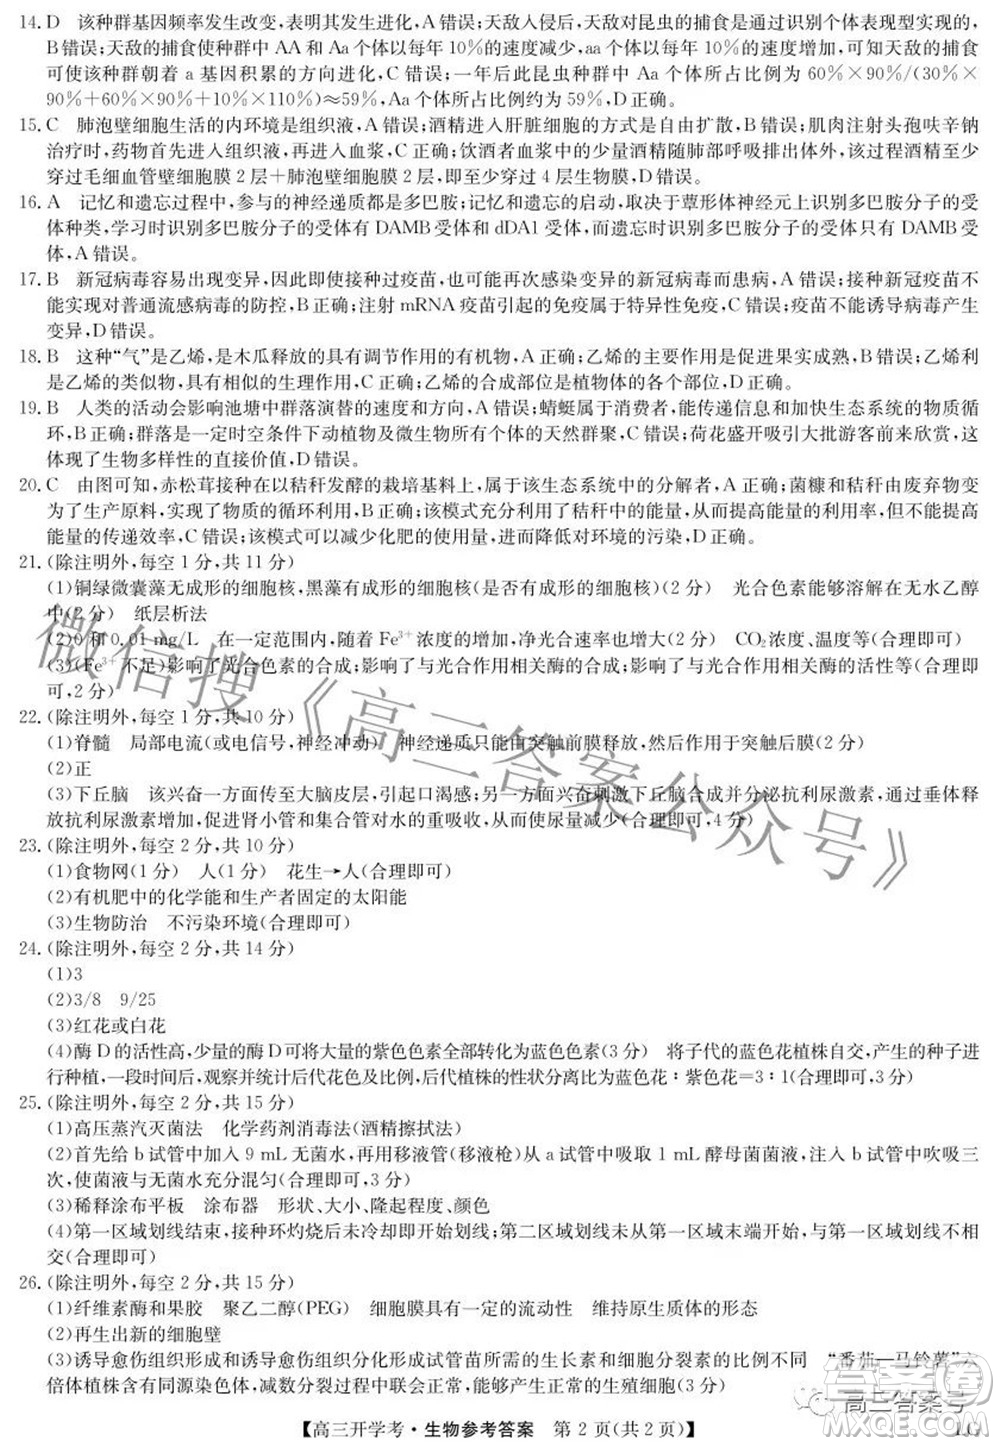 14. D　该种群基因频率发生改变,表明其发生进化,A 错误;天敌入侵后,天敌对昆虫的捕食是通过识别个体表现型实现的,
B 错误;天敌的捕食使种群中 AA 和 Aa 个体以每年 10%的速度减少,aa 个体以每年 10%的速度增加,可知天敌的捕食
可使该种群朝着 a 基因积累的方向进化,C 错误;一年后此昆虫种群中 Aa 个体所占比例为 60%×90%/(30%×
90%+60%×90%+10%×110%)≈59%,Aa 个体所占比例约为 59%,D 正确。
15. C　肺泡壁细胞生活的内环境是组织液,A 错误;酒精进入肝脏细胞的方式是自由扩散,B 错误;肌肉注射头孢呋辛钠
治疗时,药物首先进入组织液,再进入血浆,C 正确;饮酒者血浆中的少量酒精随肺部呼吸排出体外,该过程酒精至少
穿过毛细血管壁细胞膜 2 层+肺泡壁细胞膜 2 层,即至少穿过 4 层生物膜,D 错误。
16. A　记忆和遗忘过程中,参与的神经递质都是多巴胺;记忆和遗忘的启动,取决于蕈形体神经元上识别多巴胺分子的受
体种类,学习时识别多巴胺分子的受体有 DAMB 受体和 dDA1 受体,而遗忘时识别多巴胺分子的受体只有 DAMB 受
体,A 错误。
17. B　新冠病毒容易出现变异,因此即使接种过疫苗,也可能再次感染变异的新冠病毒而患病,A 错误;接种新冠疫苗不
能实现对普通流感病毒的防控,B 正确;注射 mRNA 疫苗引起的免疫属于特异性免疫,C 错误;疫苗不能诱导病毒产生
变异,D 错误。
18. B　这种“气”是乙烯,是木瓜释放的具有调节作用的有机物,A 正确;乙烯的主要作用是促进果实成熟,B 错误;乙烯利
是乙烯的类似物,具有相似的生理作用,C 正确;乙烯的合成部位是植物体的各个部位,D 正确。
19. B　人类的活动会影响池塘中群落演替的速度和方向,A 错误;蜻蜓属于消费者,能传递信息和加快生态系统的物质循
环,B 正确;群落是一定时空条件下动植物及微生物所有个体的天然群聚,C 错误;荷花盛开吸引大批游客前来欣赏,这
体现了生物多样性的直接价值,D 错误。
20. C　由图可知,赤松茸接种在以秸秆发酵的栽培基料上,属于该生态系统中的分解者,A 正确;菌糠和秸秆由废弃物变
为了生产原料,实现了物质的循环利用,B 正确;该模式充分利用了秸秆中的能量,从而提高能量的利用率,而非提高能
量的传递效率,C 错误;该模式可以减少化肥的使用量,进而降低对环境的污染,D 正确。
21. (除注明外,每空 1 分,共 11 分)
(1)铜绿微囊藻无成形的细胞核,黑藻有成形的细胞核(是否有成形的细胞核)(2 分)　光合色素能够溶解在无水乙醇
中(2 分)　纸层析法
(2)0 和 0.01 mg/L　在一定范围内,随着 Fe³⁺浓度的增加,净光合速率也增大(2 分)　CO₂浓度、温度等(合理即可)
(3)(Fe³⁺不足)影响了光合色素的合成;影响了与光合作用相关酶的合成;影响了与光合作用相关酶的活性等(合理即
可,2 分)
22. (除注明外,每空 1 分,共 10 分)
(1)脊髓　局部电流(或电信号,神经冲动)　神经递质只能由突触前膜释放,然后作用于突触后膜(2 分)
(2)正
(3)下丘脑　该兴奋一方面传至大脑皮层,引起口渴感;另一方面兴奋刺激下丘脑合成并分泌抗利尿激素,通过垂体释
放抗利尿激素增加,促进肾小管和集合管对水的重吸收,从而使尿量减少(合理即可,4 分)
23. (除注明外,每空 2 分,共 10 分)
(1)食物网(1 分)　人(1 分)　花生→人(合理即可)
(2)有机肥中的化学能和生产者固定的太阳能
(3)生物防治　不污染环境(合理即可)
24. (除注明外,每空 2 分,共 14 分)
(1)3
(2)3/8　9/25
(3)红花或白花
(4)酶 D 的活性高,少量的酶 D 可将大量的紫色色素全部转化为蓝色色素(3 分)　将子代的蓝色花植株自交,产生的种子进
行种植,一段时间后,观察并统计后代花色及比例,后代植株的性状分离比为蓝色花∶紫色花=3∶1(合理即可,3 分)
25. (除注明外,每空 2 分,共 15 分)
(1)高压蒸汽灭菌法　化学药剂消毒法(酒精擦拭法)
(2)首先给 b 试管中加入 9 mL 无菌水,再用移液管(移液枪)从 a 试管中吸取 1 mL 酵母菌菌液,注入 b 试管中吹吸三
次,使菌液与无菌水充分混匀(合理即可,3 分)
(3)稀释涂布平板　涂布器　形状、大小、隆起程度、颜色
(4)第一区域划线结束,接种环灼烧后未冷却即开始划线;第二区域划线未从第一区域末端开始,与第一区域划线不相
交(合理即可)
26. (除注明外,每空 2 分,共 15 分)
(1)纤维素酶和果胶　聚乙二醇(PEG)　细胞膜具有一定的流动性　维持原生质体的形态
(2)再生出新的细胞壁
(3)诱导愈伤组织形成和诱导愈伤组织分化形成试管苗所需的生长素和细胞分裂素的比例不同　“番茄—马铃薯”六
倍体植株含有同源染色体,减数分裂过程中联会正常,能够产生可育后代(3 分)
【高三开学考·生物参考答案　第 2 页(共 2 页)】
微信搜《高三答案公众号》
高三答案号